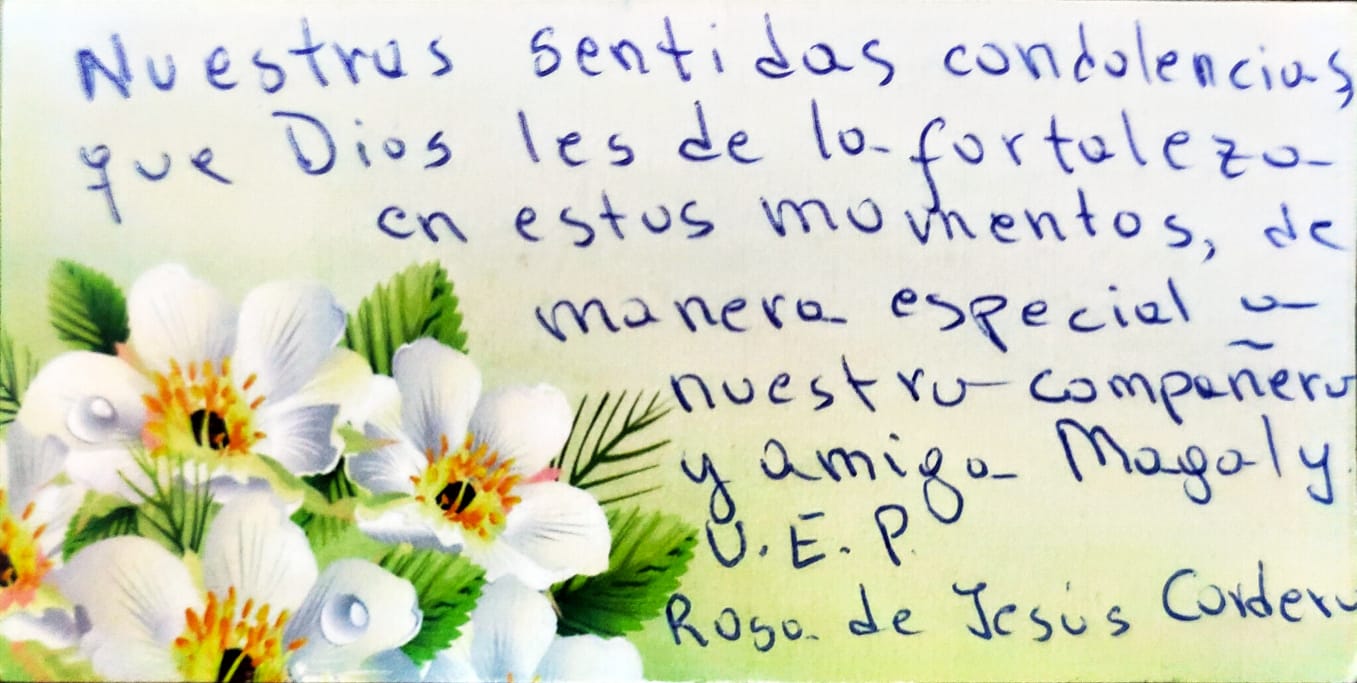 Nuestras sentidas condolencias,
que Dios les de la fortaleza
en estos momentos, de
manera especial a
nuestra compañera
y amiga Magaly.
U.E.P.
Rosa de Jesús Cordero